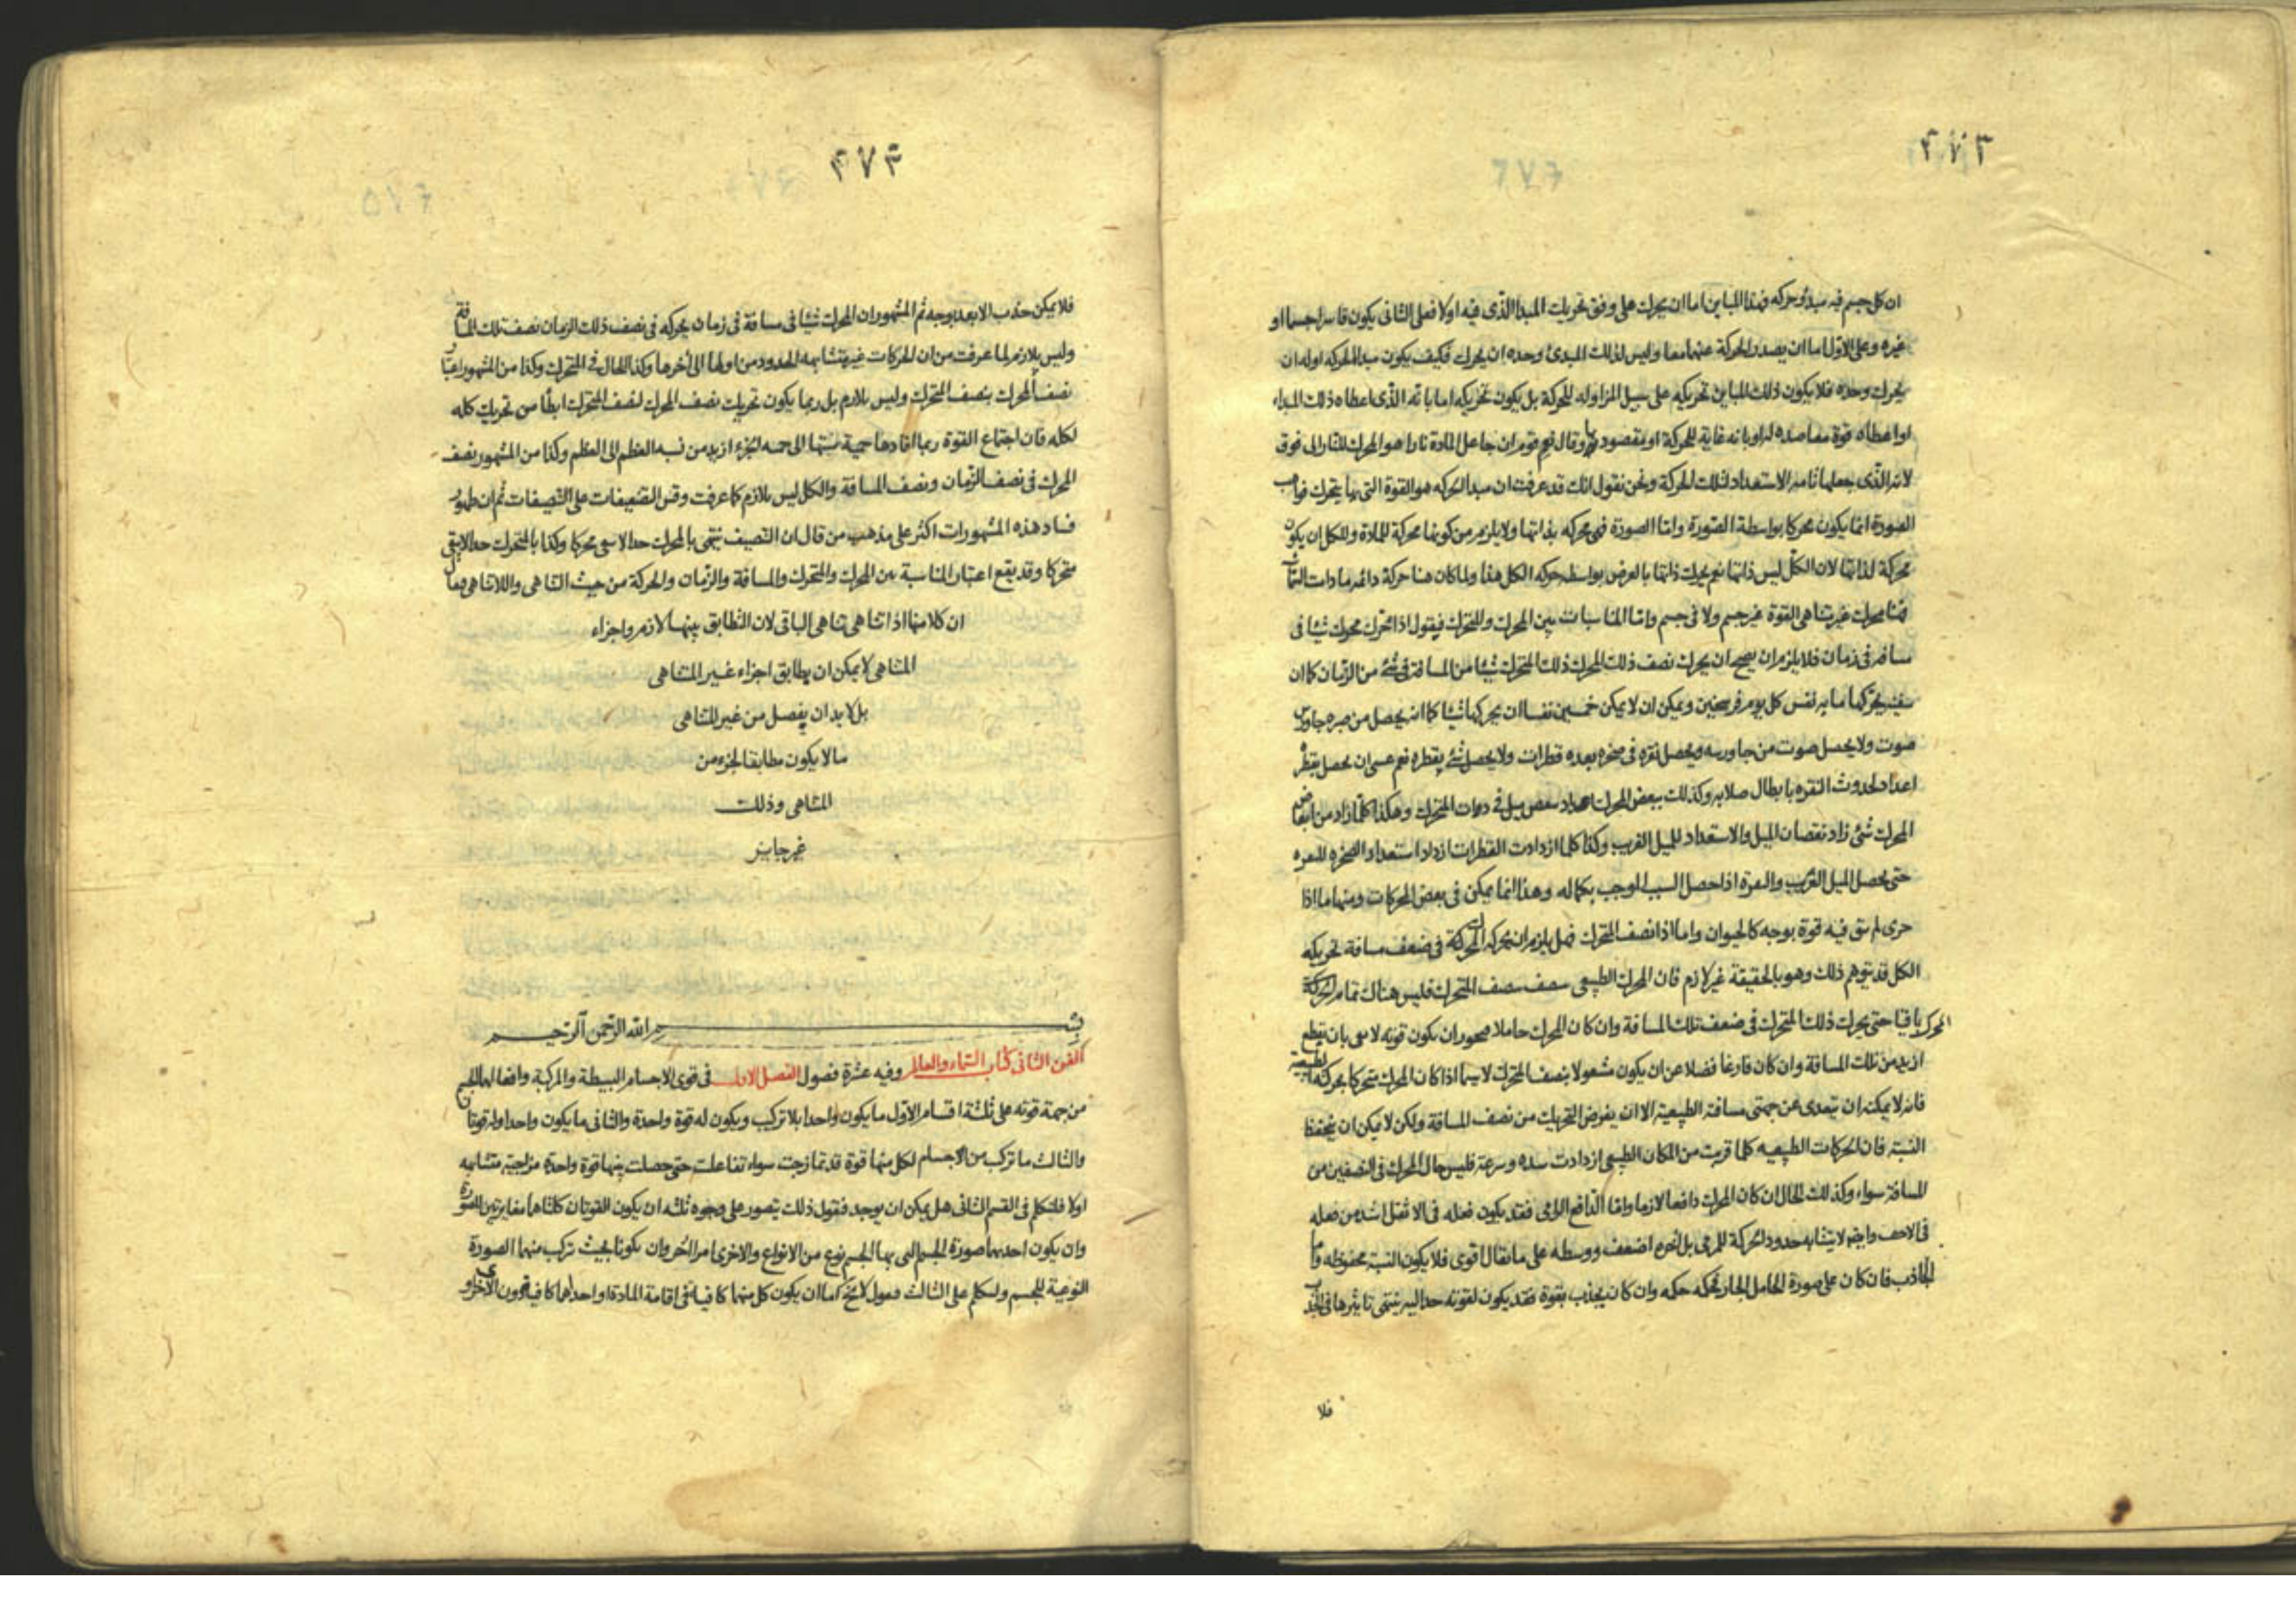 ٤٧٣
ان كل جسم فيه مبدؤ حركه فهذا المباين اما ان يحرك على وفق تحريك المبدا الذى فيه اولا فعلى الثانى يكون قاسرا جسما او
غيره وعلى الاول اما ان يصدر الحركة عنهما معا وليس لذلك المبدئ وحده ان يحرك فكيف يكون مبدا للحركه اوله ان
يحرك وحده فلا يكون ذلك المباين تحريكه على سبيل المزاوله للحركة بل يكون تحريكه اما بانه الذى اعطاه ذلك المبداء
او اعطاه قوة معاضده له او بانه غاية للحركة او مقصود بها وقال قوم ان جاعل المادة نارا هو المحرك للنار الى فوق
لانه الذى بجعلها نارا الاستعداد لتلك الحركة ونحن نقول انك قد عرفت ان مبدا الحركه هو القوة التى بها يتحرك فواهب
الصورة انما يكون محركا بواسطة الصورة واما الصورة فهى محركه بذاتها ولا يلزم من كونها محركة للمادة وللكل ان يكون
محركة لذاتها لان الكل ليس ذاتها نعم يحرك ذاتها بالعرض بواسطه حركه الكل هذا ولما كان هنا حركة دائمه مادات
فهنا محرك غير متناهى القوة غير جسم ولا فى جسم واما المناسبات بين المحرك والمتحرك فيقول اذا حرك محرك شيئا فى
مسافه فى زمان فلا يلزم ان يصح ان يحرك نصف ذلك المحرك ذلك المتحرك شيئا من المسافة فى شئ من الزمان كما ان
سفينه يحركها مايه نفس كل يوم فرسخين ويمكن ان لا يمكن خمسين نفسا ان يحركها شيئا كما انه يحصل من صبره جاورس
صوت ولا يحصل صوت من جاورسه ويحصل نقره فى صخره بعده قطرات ولا يحصل شئ بقطره نعم عسى ان يحصل بقطره
اعداد لحدوث النقره بابطال صلابه وكذلك ببعض المحرك اعداد بعض ميل فى المتحرك وهكذا كلما زاد من ابعاض
المحرك شئ زاد نقصان الميل والاستعداد للميل الغريب وكذا كلما ازدادت القطرات ازداد استعداد الصخره للنقره
حتى يحصل الميل الغريب والنقرة اذا حصل السبب الموجب بكماله وهذا انما يمكن فى بعض المحركات ومنها ما اذا
جزى لم يبق فيه قوة بوجه كالحيوان واما اذا نصف المتحرك فهل يلزم ان يحركه المحرك فى ضعف مسافة تحريكه
الكل قد يتوهم ذلك وهو بالحقيقة غير لازم فان المحرك الطبيعى ينصف بنصف المتحرك فليس هناك تمام المحرك
باقيا حتى يحرك ذلك المتحرك فى ضعف تلك المسافة وان كان المحرك حاملا فيجوز ان يكون قوته لا تفى بان تقطع
ازيد من تلك المسافة وان كان فارغا فضلا عن ان يكون مشغولا بنصف المتحرك لا سيما اذا كان المحرك متحركا بحركه الطبيعية
فانه لا يمكنه ان يتعدى عن جهتى مسافته الطبيعية الا ان يفرض التحريك من نصف المسافة ولكن لا يمكن ان يتحفظ
النسبة فان الحركات الطبيعيه كلما قربت من المكان الطبيعى ازدادت شده وسرعة فليس حال المحرك فى النصفين من
المسافة سواء وكذلك الحال ان كان المحرك دافعا لازما واما الدافع الرامى فقد يكون فعله فى الاثقل اشد من فعله
فى الاخف وايضا لا يتشابه حدود الحركة للمرمى بل اخره اضعف ووسطه على ما يقال اقوى فلا يكون النسبة محفوظه واما
الجاذب فان كان على صورة الحامل الجار فحكمه حكمه وان كان يجذب بقوة فقد يكون لقوته حد اليه ينتهى تاثيرها فى الجذب
فلا
٤٧٤
فلا يمكن جذب الابعد بوجه ثم المشهور ان المحرك شيئا فى مسافة فى زمان يحركه فى نصف ذلك الزمان نصف تلك المسافة
وليس بلازم لما عرفت من ان الحركات غير متشابهه الحدود من اولها الى اخرها وكذا الحال فى المتحرك وكذا من المشهور اعتبار
نصف المحرك بنصف المتحرك وليس بلازم بل ربما يكون تحريك نصف المحرك لنصف المتحرك ابطأ من تحريك كله
لكله فان اجتماع القوة ربما افادها حمية نسبتها الى حميه الجزء ازيد من نسبه العظم الى العظم وكذا من المشهور نصف
المحرك فى نصف الزمان ونصف المسافة والكل ليس بلازم كما عرفت وقس التضعيفات على التنصيفات ثم ان ظهور
فساد هذه المشهورات اكثر على مذهب من قال ان التنصيف ينتهى بالمحرك حدا لا يبقى محركا وكذا بالمتحرك حدا لا يبقى
متحركا وقد يقع اعتبار المناسبة بين المحرك والمتحرك والمسافة والزمان والحركة من حيث التناهى واللاتناهى
ان كلا منها اذا تناهى تناهى الباقى لان التطابق بينها لازم واجزاء
المتناهى لا يمكن ان يطابق اجزاء غير المتناهى
بل لا بد ان يفصل من غير المتناهى
ما لا يكون مطابقا لجزء من
المتناهى وذلك
غير جايز
بسم الله الرحمن الرحيم
الفن الثانى كتاب السماء والعالم وفيه عشرة فصول الفصل الاول فى قوى الاجسام البسيطة والمركبة وافعالها للجسم
من جهة قوته على ثلثة اقسام الاول ما يكون واحدا بلا تركيب ويكون له قوة واحدة والثانى ما يكون واحدا وله قوتان
والثالث ما تركب من الاجسام لكل منها قوة قد تمازجت سواء تفاعلت حتى حصلت بينها قوة واحدة مزاجية متشابهه
اولا فلنتكلم فى القسم الثانى هل يمكن ان يوجد فنقول ذلك يتصور على وجوه ثلثه ان يكون القوتان كلتاهما مغايرتين للصورة
وان يكون احدهما صورة للجسم التى بها الجسم نوع من الانواع والاخرى امرا اخر وان يكونا بحيث تركب منهما الصورة
النوعية للجسم ولنتكلم على الثالث فنقول لا يخ اما ان يكون كل منهما كافيا فى اقامة المادة او احدهما كافيا دون الاخرى او